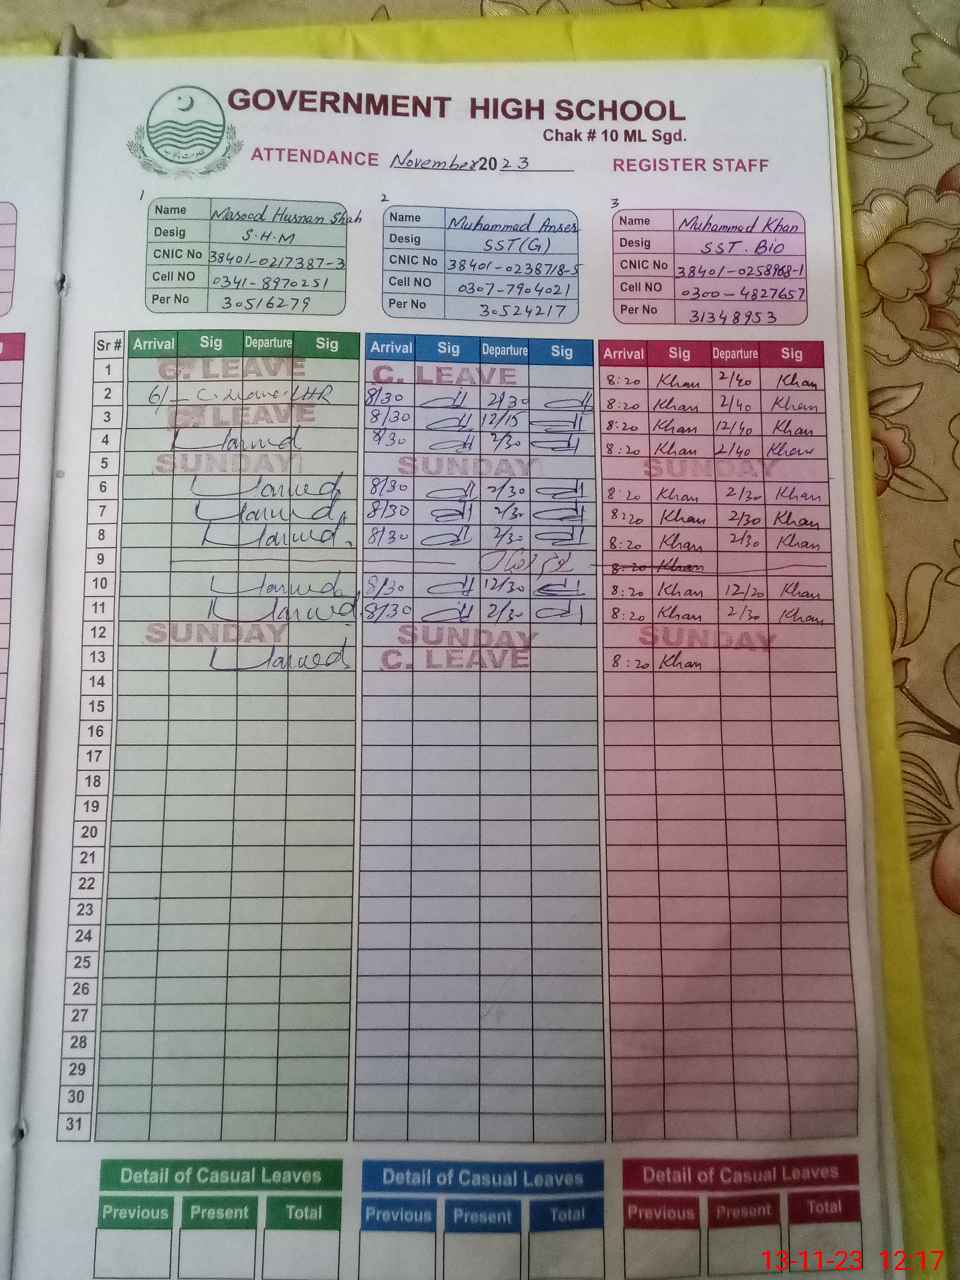 GOVERNMENT HIGH SCHOOL
Chak # 10 ML Sgd.
ATTENDANCE November 2023 REGISTER STAFF
1 2 3
Name Masood Husnan Shah Name Muhammad Anser Name Muhammad Khan
Desig S.H.M Desig SST(G) Desig SST. Bio
CNIC No 38401-0217387-3 CNIC No 38401-0238718-5 CNIC No 38401-0258968-1
Cell NO 0341-8970251 Cell NO 0307-7904021 Cell NO 0300-4827657
Per No 30516279 Per No 30524217 Per No 31348953
Sr # Arrival Sig Departure Sig Arrival Sig Departure Sig Arrival Sig Departure Sig
1 C. LEAVE C. LEAVE 8:20 Khan 2/40 Khan
2 8/30 2/30 8:20 Khan 2/40 Khan
3 C. LEAVE 8/30 12/15 8:20 Khan 12/40 Khan
4 8/30 2/30 8:20 Khan 2/40 Khan
5 SUNDAY SUNDAY SUNDAY
6 8/30 2/30 8:20 Khan 2/30 Khan
7 8/30 2/30 8:20 Khan 2/30 Khan
8 8/30 2/30 8:20 Khan 2/30 Khan
9 8:20 Khan
10 8/30 12/30 8:20 Khan 12/20 Khan
11 8/30 2/30 8:20 Khan 2/30 Khan
12 SUNDAY SUNDAY SUNDAY
13 C. LEAVE 8:20 Khan
14
15
16
17
18
19
20
21
22
23
24
25
26
27
28
29
30
31
Detail of Casual Leaves Detail of Casual Leaves Detail of Casual Leaves
Previous Present Total Previous Present Total Previous Present Total
13-11-23 12:17